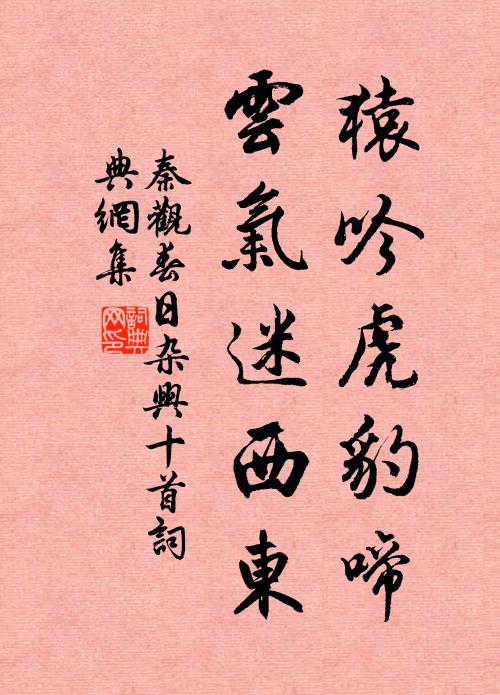 猿吟虎豹啼
雲氣迷西東
秦觀春日杂興十首詞
典網集
詞典
网印